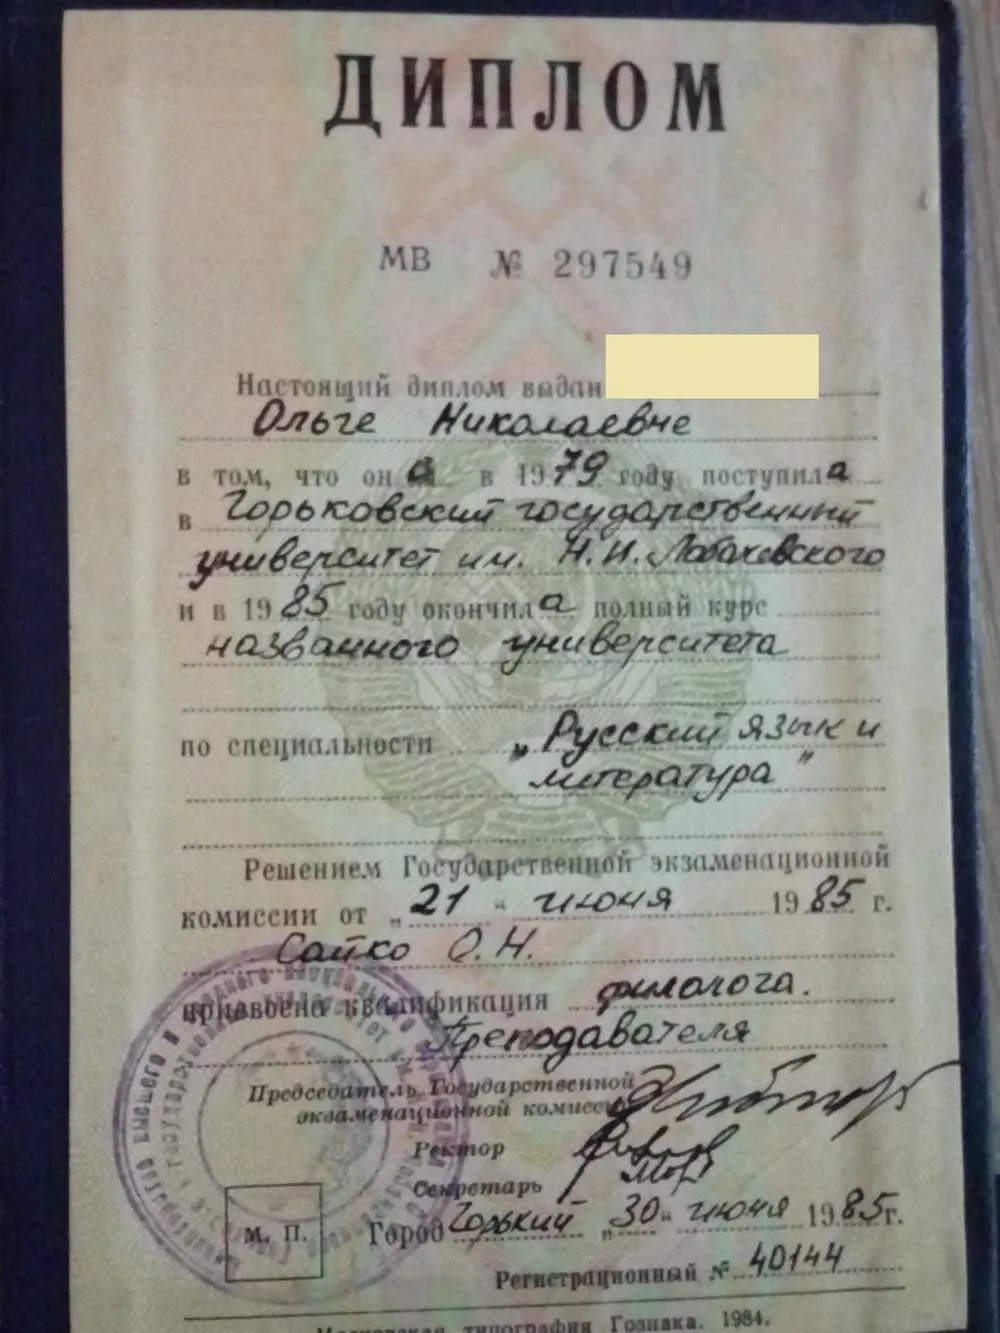 ДИПЛОМ
МВ № 297549
Настоящий диплом выдан
Ольге Николаевне
в том, что она в 1979 году поступила
в Горьковский государственный
университет им. Н.И. Лобачевского
и в 1985 году окончила полный курс
названного университета
по специальности „Русский язык и
литература"
Решением Государственной экзаменационной
комиссии от „21" июня 1985 г.
Сайко О.Н.
присвоена квалификация филолога.
Преподавателя
Председатель Государственной
экзаменационной комиссии
Ректор
Секретарь
М. П. Город Горький „30" июня 1985г.
Регистрационный № 40144
Московская типография Гознака. 1984.